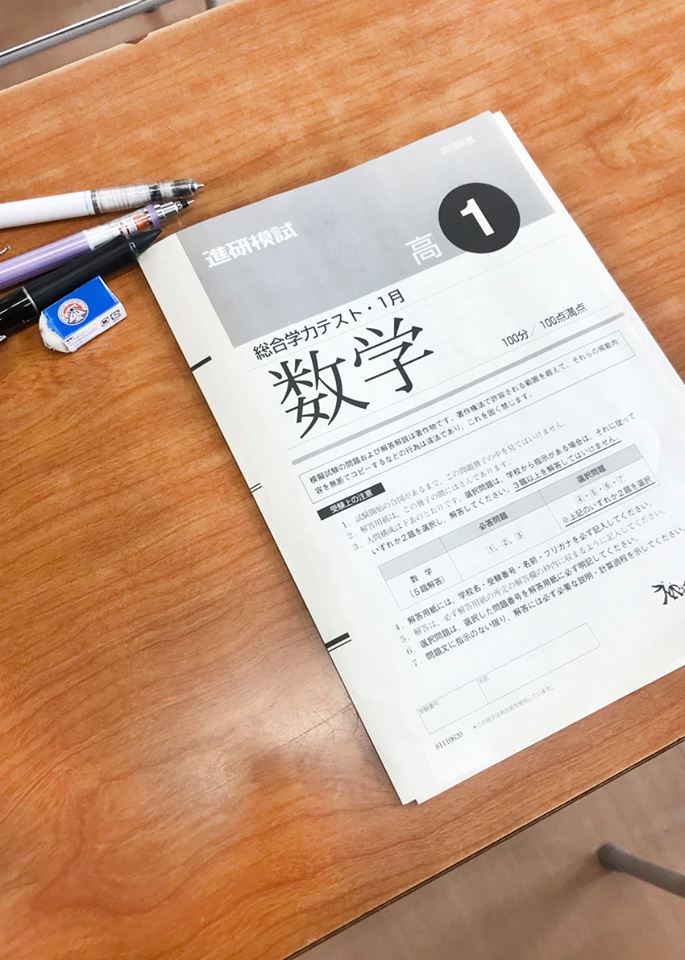 進研模試
高
1
総合学力テスト・1月
数学
100分／100点満点
模擬試験の問題および解答解説は著作物です。著作権法で許容される範囲を超えて、それらの掲載内
容を無断でコピーするなどの行為は違法であり、これを固く禁じます。
受験上の注意
1．試験開始の合図があるまで、この問題冊子の中を見てはいけません。
2．解答用紙は、この冊子の間にはさんであります。
3．大問構成は下表のとおりです。選択問題は、学校から指示がある場合は、それに従って
いずれか2題を選択し、解答してください。3題以上を解答してはいけません。
必答問題
選択問題
数学
（5題解答）
1, 2, 3
4, 5, 6, 7
※上記のいずれか2題を選択
4．解答用紙には、学校名・受験番号・名前・フリガナを必ず記入してください。
5．解答は、必ず解答用紙の所定の解答欄の枠内に収まるように記入してください。
6．選択問題は、選択した問題番号を解答用紙に必ず明記してください。
7．問題文に指示のない限り、解答には必ず必要な説明・計算過程を示してください。
受験番号
名前
81110620
＊この冊子は再生紙を使用しています。